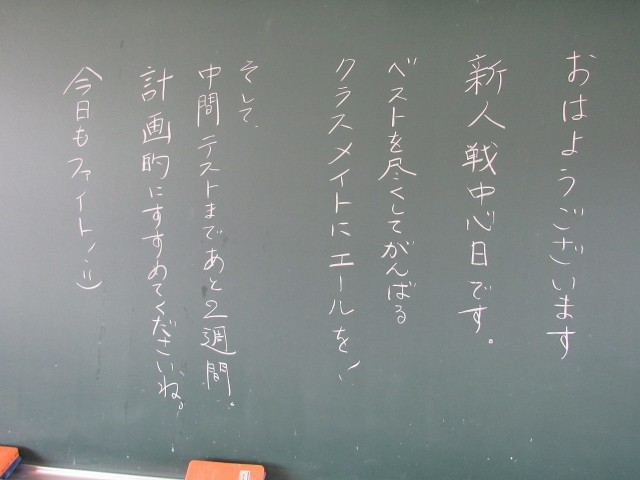 おはようございます
新人戦中心日です。
ベストを尽くしてがんばる
クラスメイトにエールを!
そして、
中間テストまであと2週間。
計画的にすすめてくださいね。
今日もファイト!:)